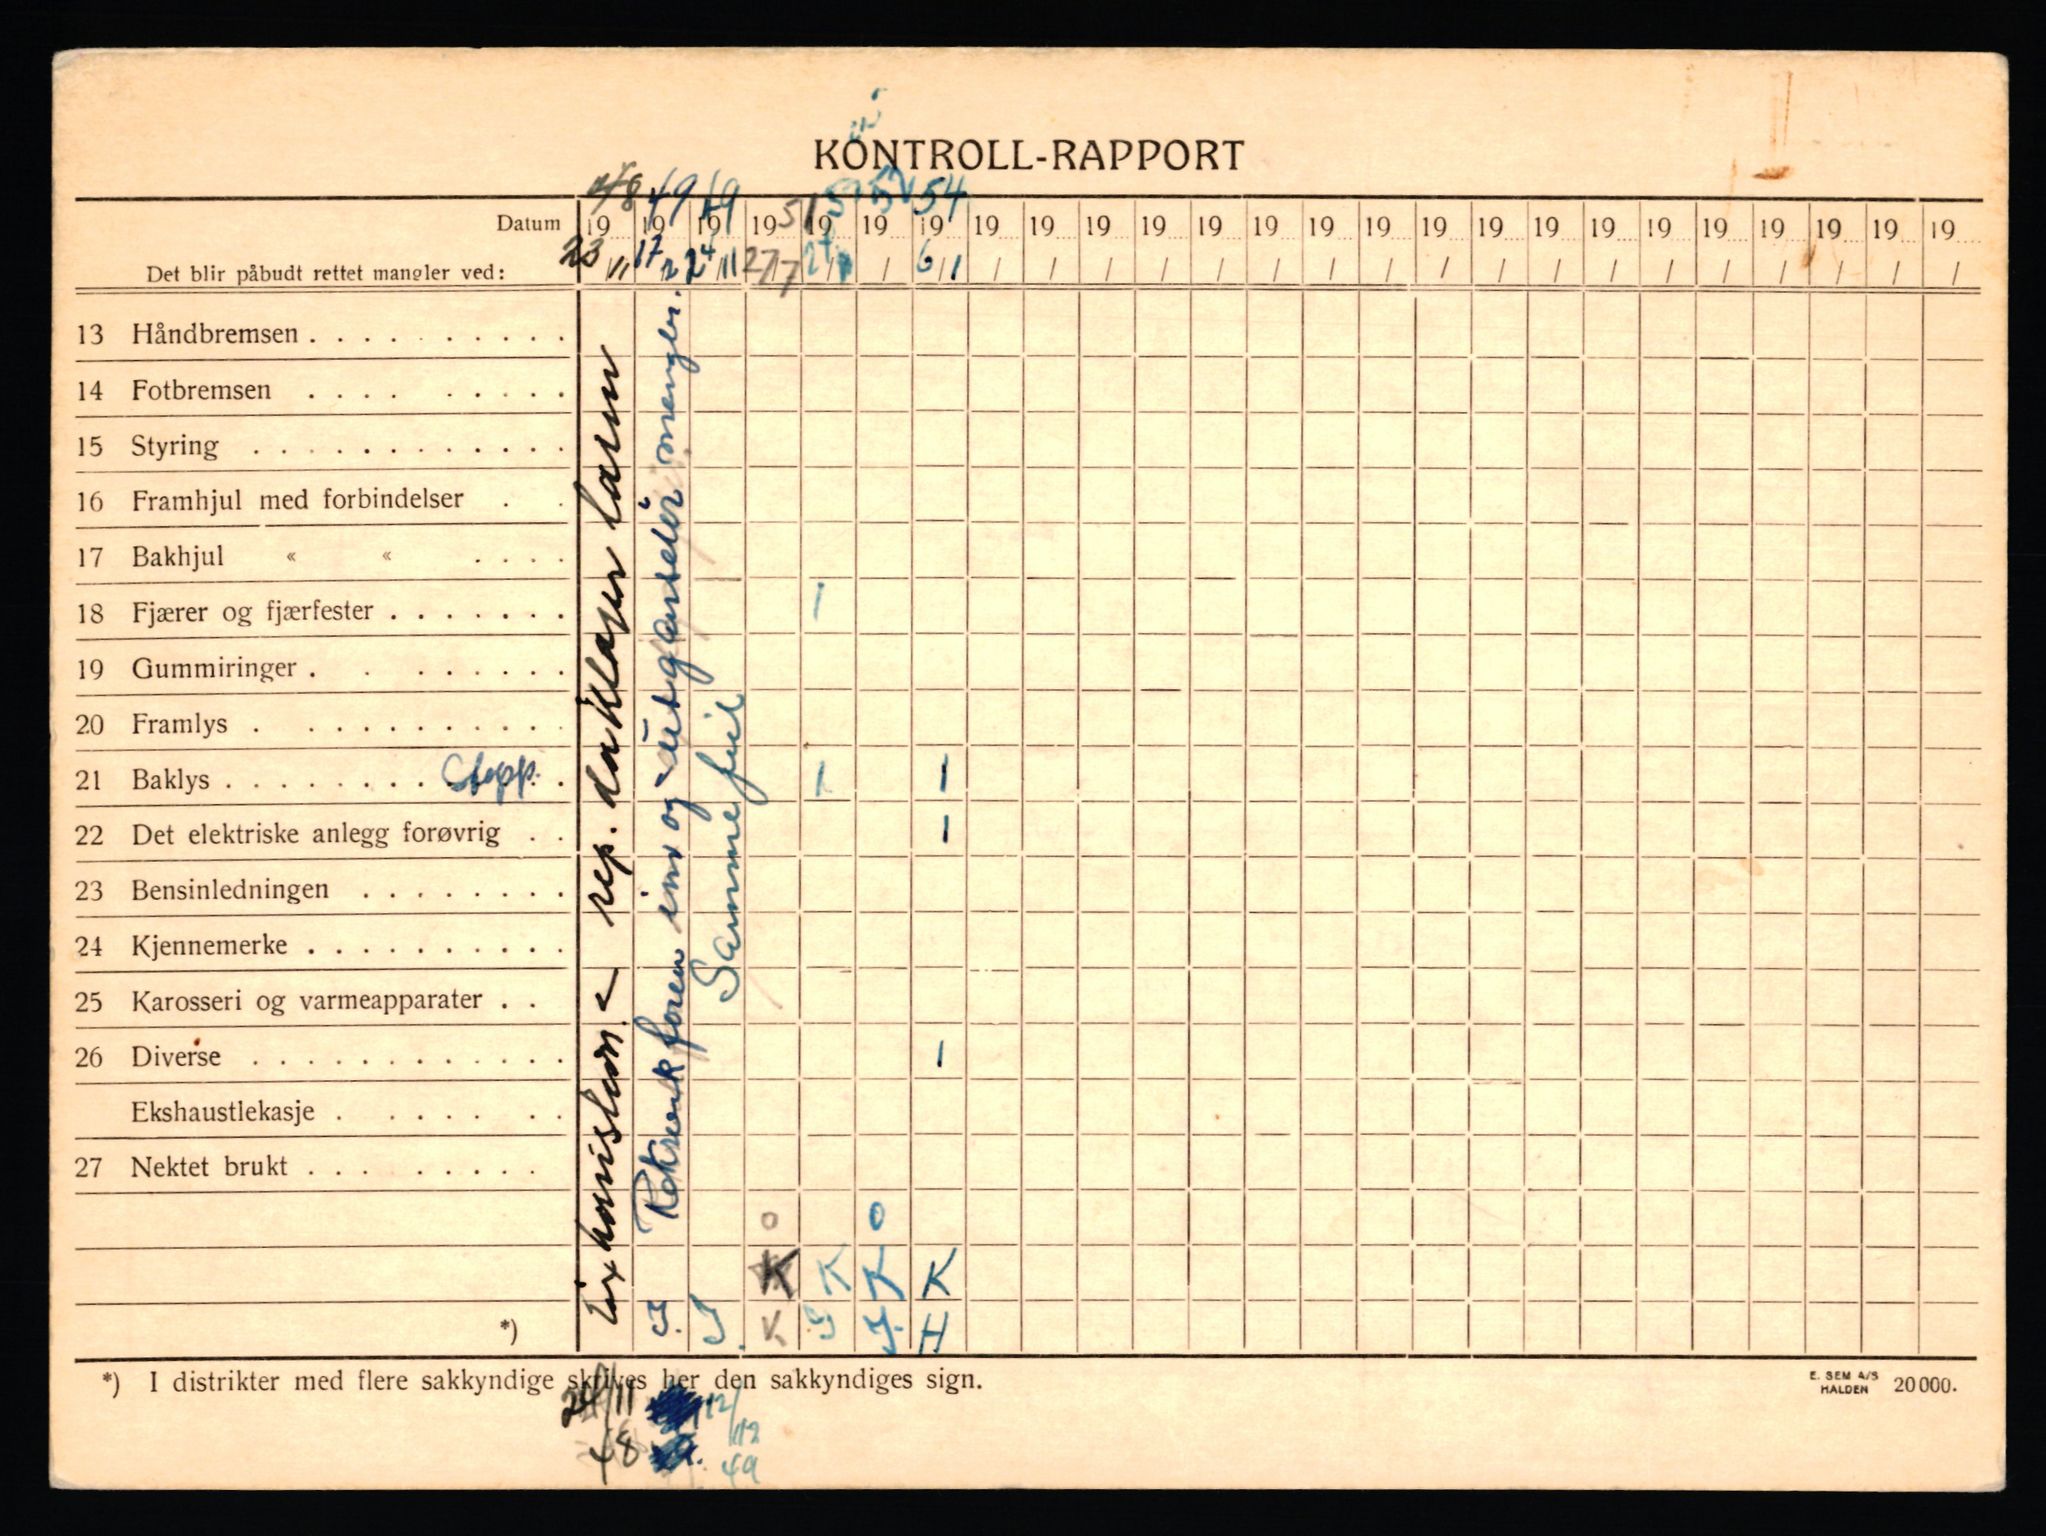 KONTROLL-RAPPORT
48 49 49 51 52 54
Datum 19 19 19 19 19 19 19 19 19 19 19 19 19 19 19 19 19 19 19 19 19 19 19 19 19
Det blir påbudt rettet mangler ved: 23/11 17/2 24/11 27/7 24/ / 6/1 / / / / / / / / / / / / / / / / / /
13 Håndbremsen . . . . . . . . . .
14 Fotbremsen . . . . . . . . .
15 Styring . . . . . . . . . . . .
16 Framhjul med forbindelser . .
17 Bakhjul « « . . . .
18 Fjærer og fjærfester . . . . . . . 1
19 Gummiringer . . . . . . . .
20 Framlys . . . . . . . . . . .
21 Baklys . . . . . . . . Stopp. . 1 1
22 Det elektriske anlegg forøvrig . . 1
23 Bensinledningen . . . . . . . .
24 Kjennemerke . . . . . . . . . .
25 Karosseri og varmeapparater . .
26 Diverse . . . . . . . . . . . 1
Ekshaustlekasje . . . . . .
27 Nektet brukt . . . . . . . .
o o
K K K K
*) J. J. K J J. H
rep.
inv og utv
Samme feil
*) I distrikter med flere sakkyndige skrives her den sakkyndiges sign.
E. SEM A/S
HALDEN 20 000.
24/11 12/12
48 49